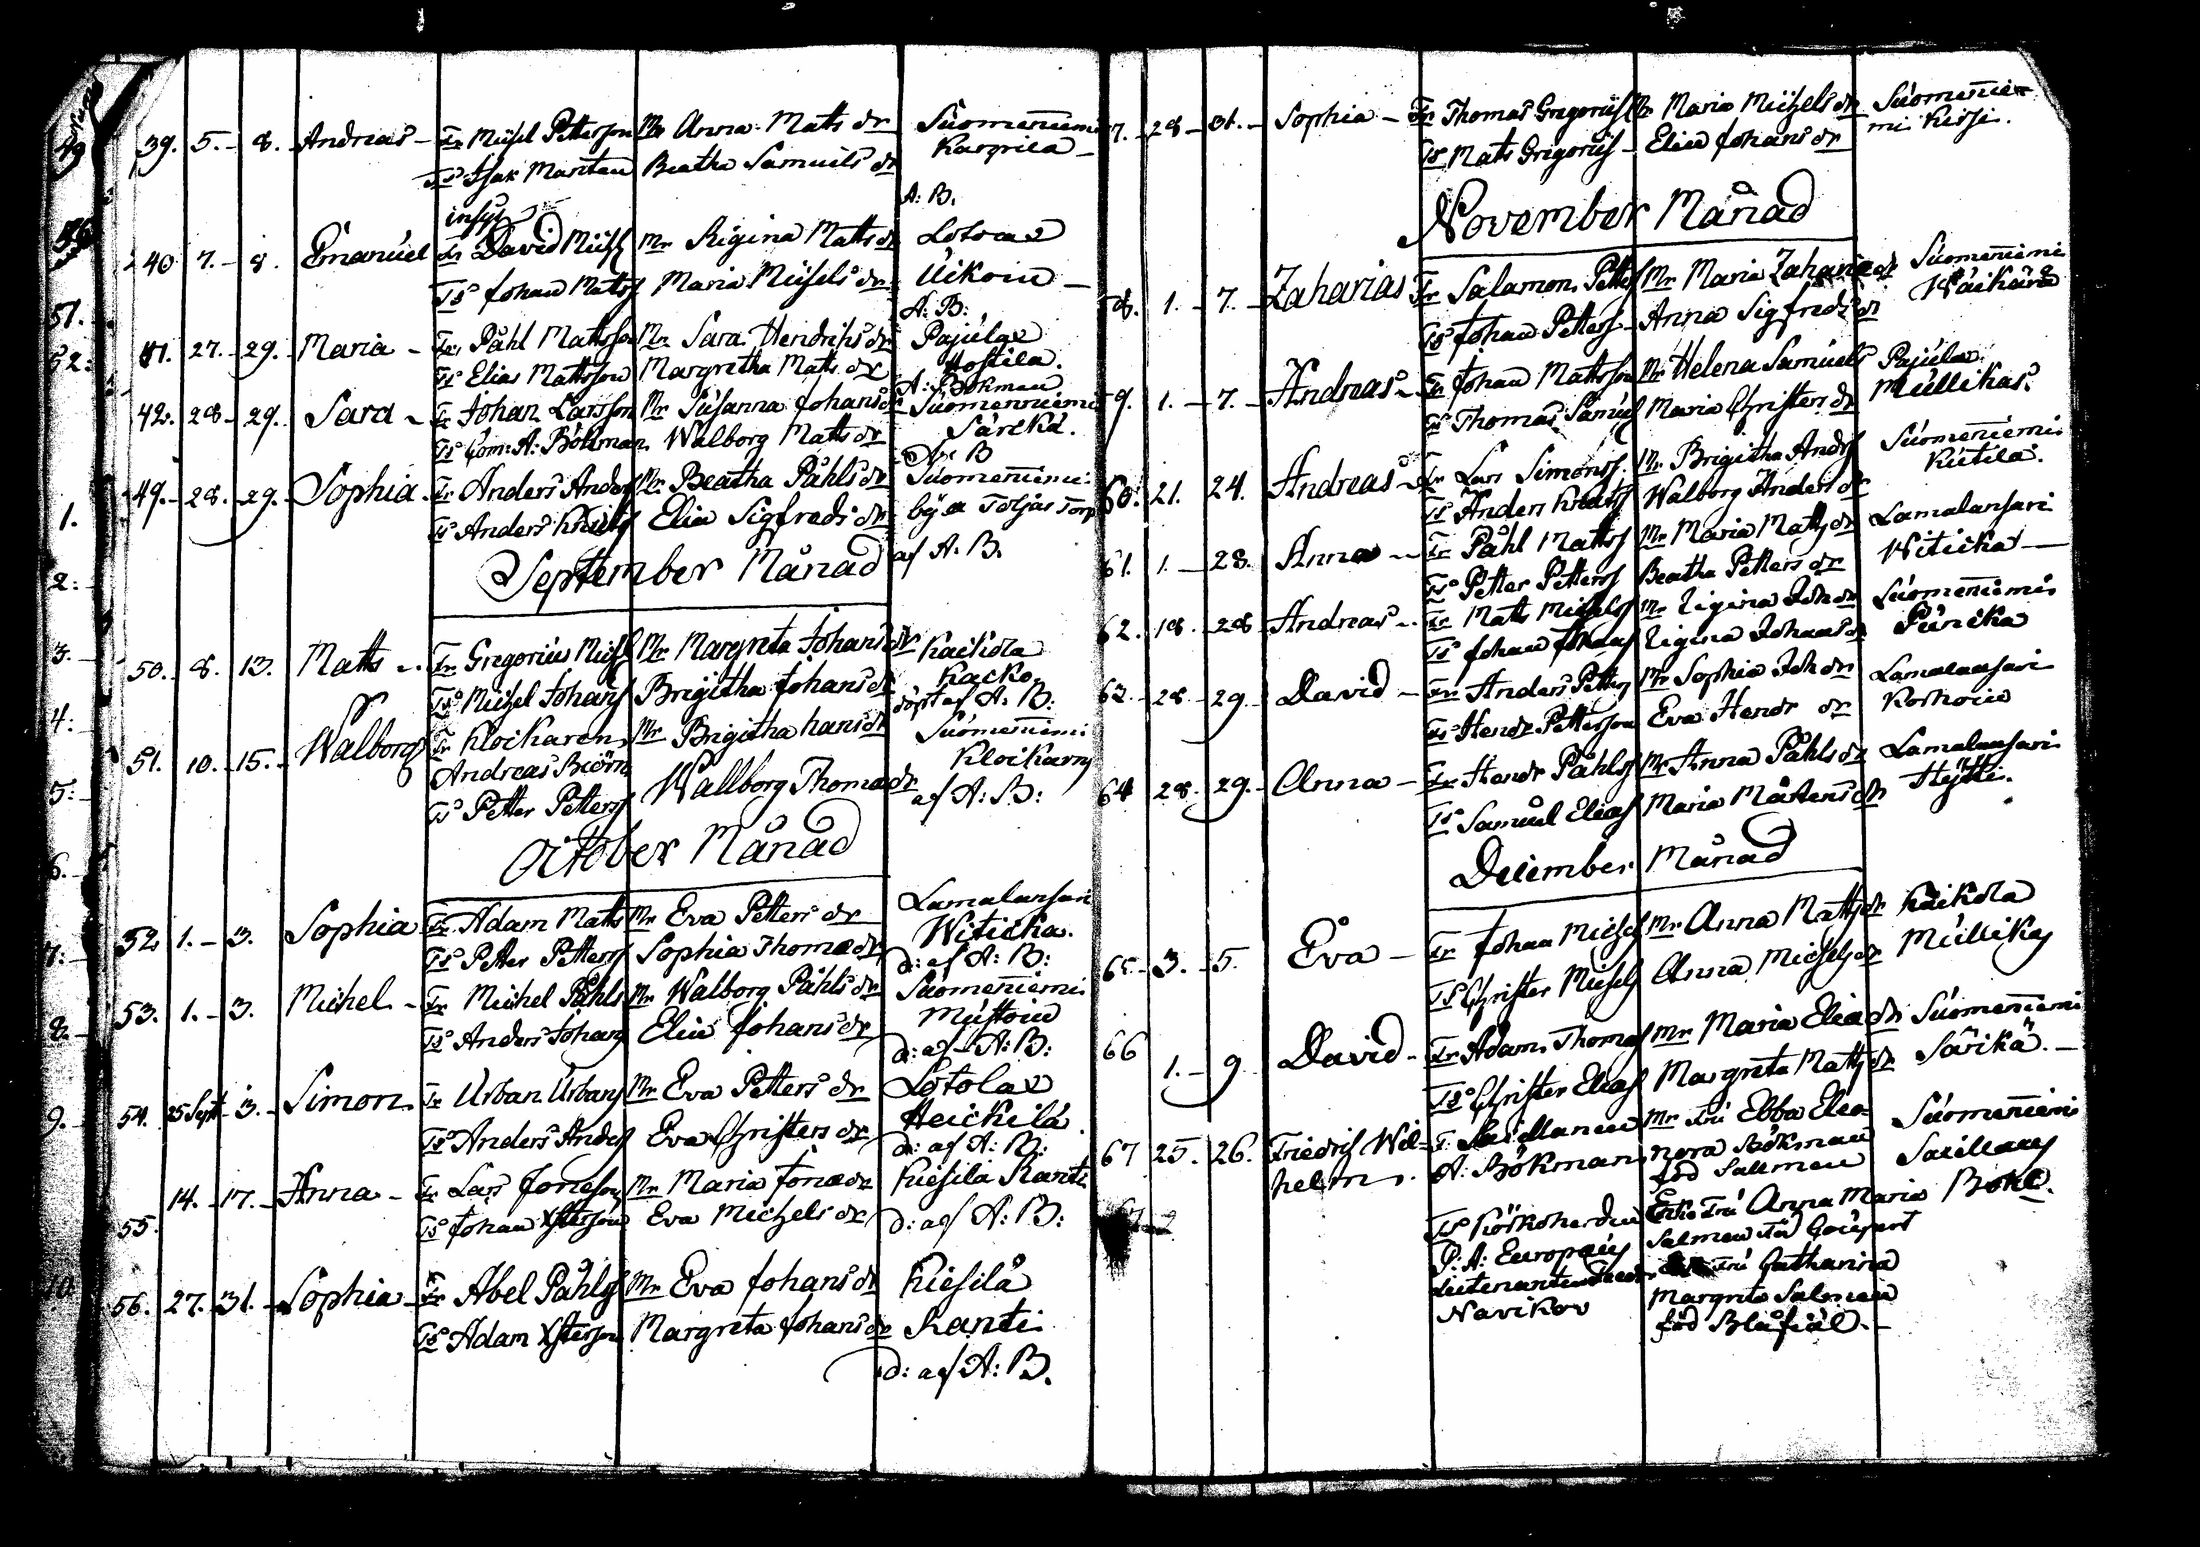 39. 5. 8. Andreas Fr Michel Petterson Mr Anna Mats dr Suomenniemi
Ts Isak Martan Beatha Samuels dr Karqvila
A: B.
40 7. 8. Emanuel Fr David Michs Mr Rigina Matts dr Lotola
Ts Johan Matts Maria Michels dr Uikoin
A: B:
41. 27. 29. Maria Fr Påhl Mattsson Mr Sara Hendrichs dr Pajula
Ts Elias Mattsson Margretha Matts dr Hostila.
A: Bökman
42. 28 29. Sara Fr Johan Larsson Mr Susanna Johans dr Suomenniemi
Ts Com: A: Bökman Walborg Matts dr Särckä.
A: B
49. 28. 29. Sophia Fr Anders Anders Mr Beatha Påhls dr Suomeniemi
Ts Anders Elin Sigfreds dr bya Torp
af A. B.
September Månad
50. 8. 13. Matts Fr Gregorius Mich Mr Margreta Johans dr Kaickola
Ts Michel Johans Brigitha Johans dr Kacko
döpt af A: B:
51. 10. 15. Walborg Fr Klockaren Mr Brigitha Hans dr Suomeniemi
Andreas Biörn Klockarns
Ts Petter Petterss Wallborg Thomæ dr af A: B:
October Månad
52 1. 3. Sophia Fr Adam Matts Mr Eva Petters dr Lamalansari
Ts Petter Petterss Sophia Thomæ dr Witicka.
d: af A: B:
53. 1. 3. Michel Fr Michel Påhls Mr Walborg Påhls dr Suomeniemi
Ts Anders Johans Elin Johans dr Mustoin
d: af A: B:
54. 25 Sept 3. Simon Fr Urban Urbans Mr Eva Petters dr Lotola
Ts Anders Anders Eva Christers dr Heickilä
d: af A: B:
55. 14. 17. Anna Fr Lars Jonesson Mr Maria Jonæ dr Kiesilä Ranti
Ts Johan Xsterson Eva Michels dr d: af A: B:
56. 27. 31. Sophia Fr Abel Påhls Mr Eva Johans dr Kiesilä
Ts Adam Xsterson Margreta Johans dr Ranti
d: af A: B.
7. 28 31. Sophia Fr Thomas Gregoriis Mr Maria Michels dr Suomennie
Ts Mats Grigoriis Elin Johans dr mi Kissi.
November Månad
58. 1. 7. Zaharias Fr Salamon Petters Mr Maria Zahariæ dr Suomeniemi
Ts Johan Petterss Anna Sigfreds dr Wäikärä
9. 1. 7. Andreas Fr Johan Mattsson Mr Helena Samuels Pajula
Ts Thomas Samuels Maria Christers dr Mullikas.
60. 21. 24. Andreas Fr Lars Simonss Mr Brigitha Anders Suomeniemi
Ts Anders Walborg Anders dr Kutila.
61. 1. 28. Anna Fr Påhl Matts Mr Maria Matts dr Lamalansari
Ts Petter Petterss Beatha Petters dr Witicka
62. 18. 28 Andreas Fr Mats Michels Mr Rigina Joh dr Suomeniemi
Ts Johan Johans Rigina Johans dr Puricka
63. 28 29. David Fr Anders Petters Mr Sophia Joh dr Lamalansari
Ts Hendr Petterson Eva Hendr dr Korhoin
64 28. 29. Anna Fr Hendr Påhls Mr Anna Påhls dr Lamalansari
Ts Samuel Elias Maria Mårtens dr Hytti.
December Månad
65. 3. 5. Eva Fr Johan Michels Mr Anna Matts dr Kaickola
Ts Christer Michels Anna Michels dr Mullikas
66 1. 9 David Fr Adam Thomas Mr Maria Eliæ dr Suomeniemi
Ts Christer Elias Margreta Matts dr Särikä.
67 25. 26. Friedrich Wil- Mr Fru Ebba Eleo- Suomeniemi
helm. A: Bökman nora Bökman
föd Salmen Boke.
Ts Kÿrkoherden Enke Fru Anna Maria
P: A: Europæus Salmen föd
Lieutenanten Fru Catharina
Navikov Margreta Salmen
föd Blåfiäl.